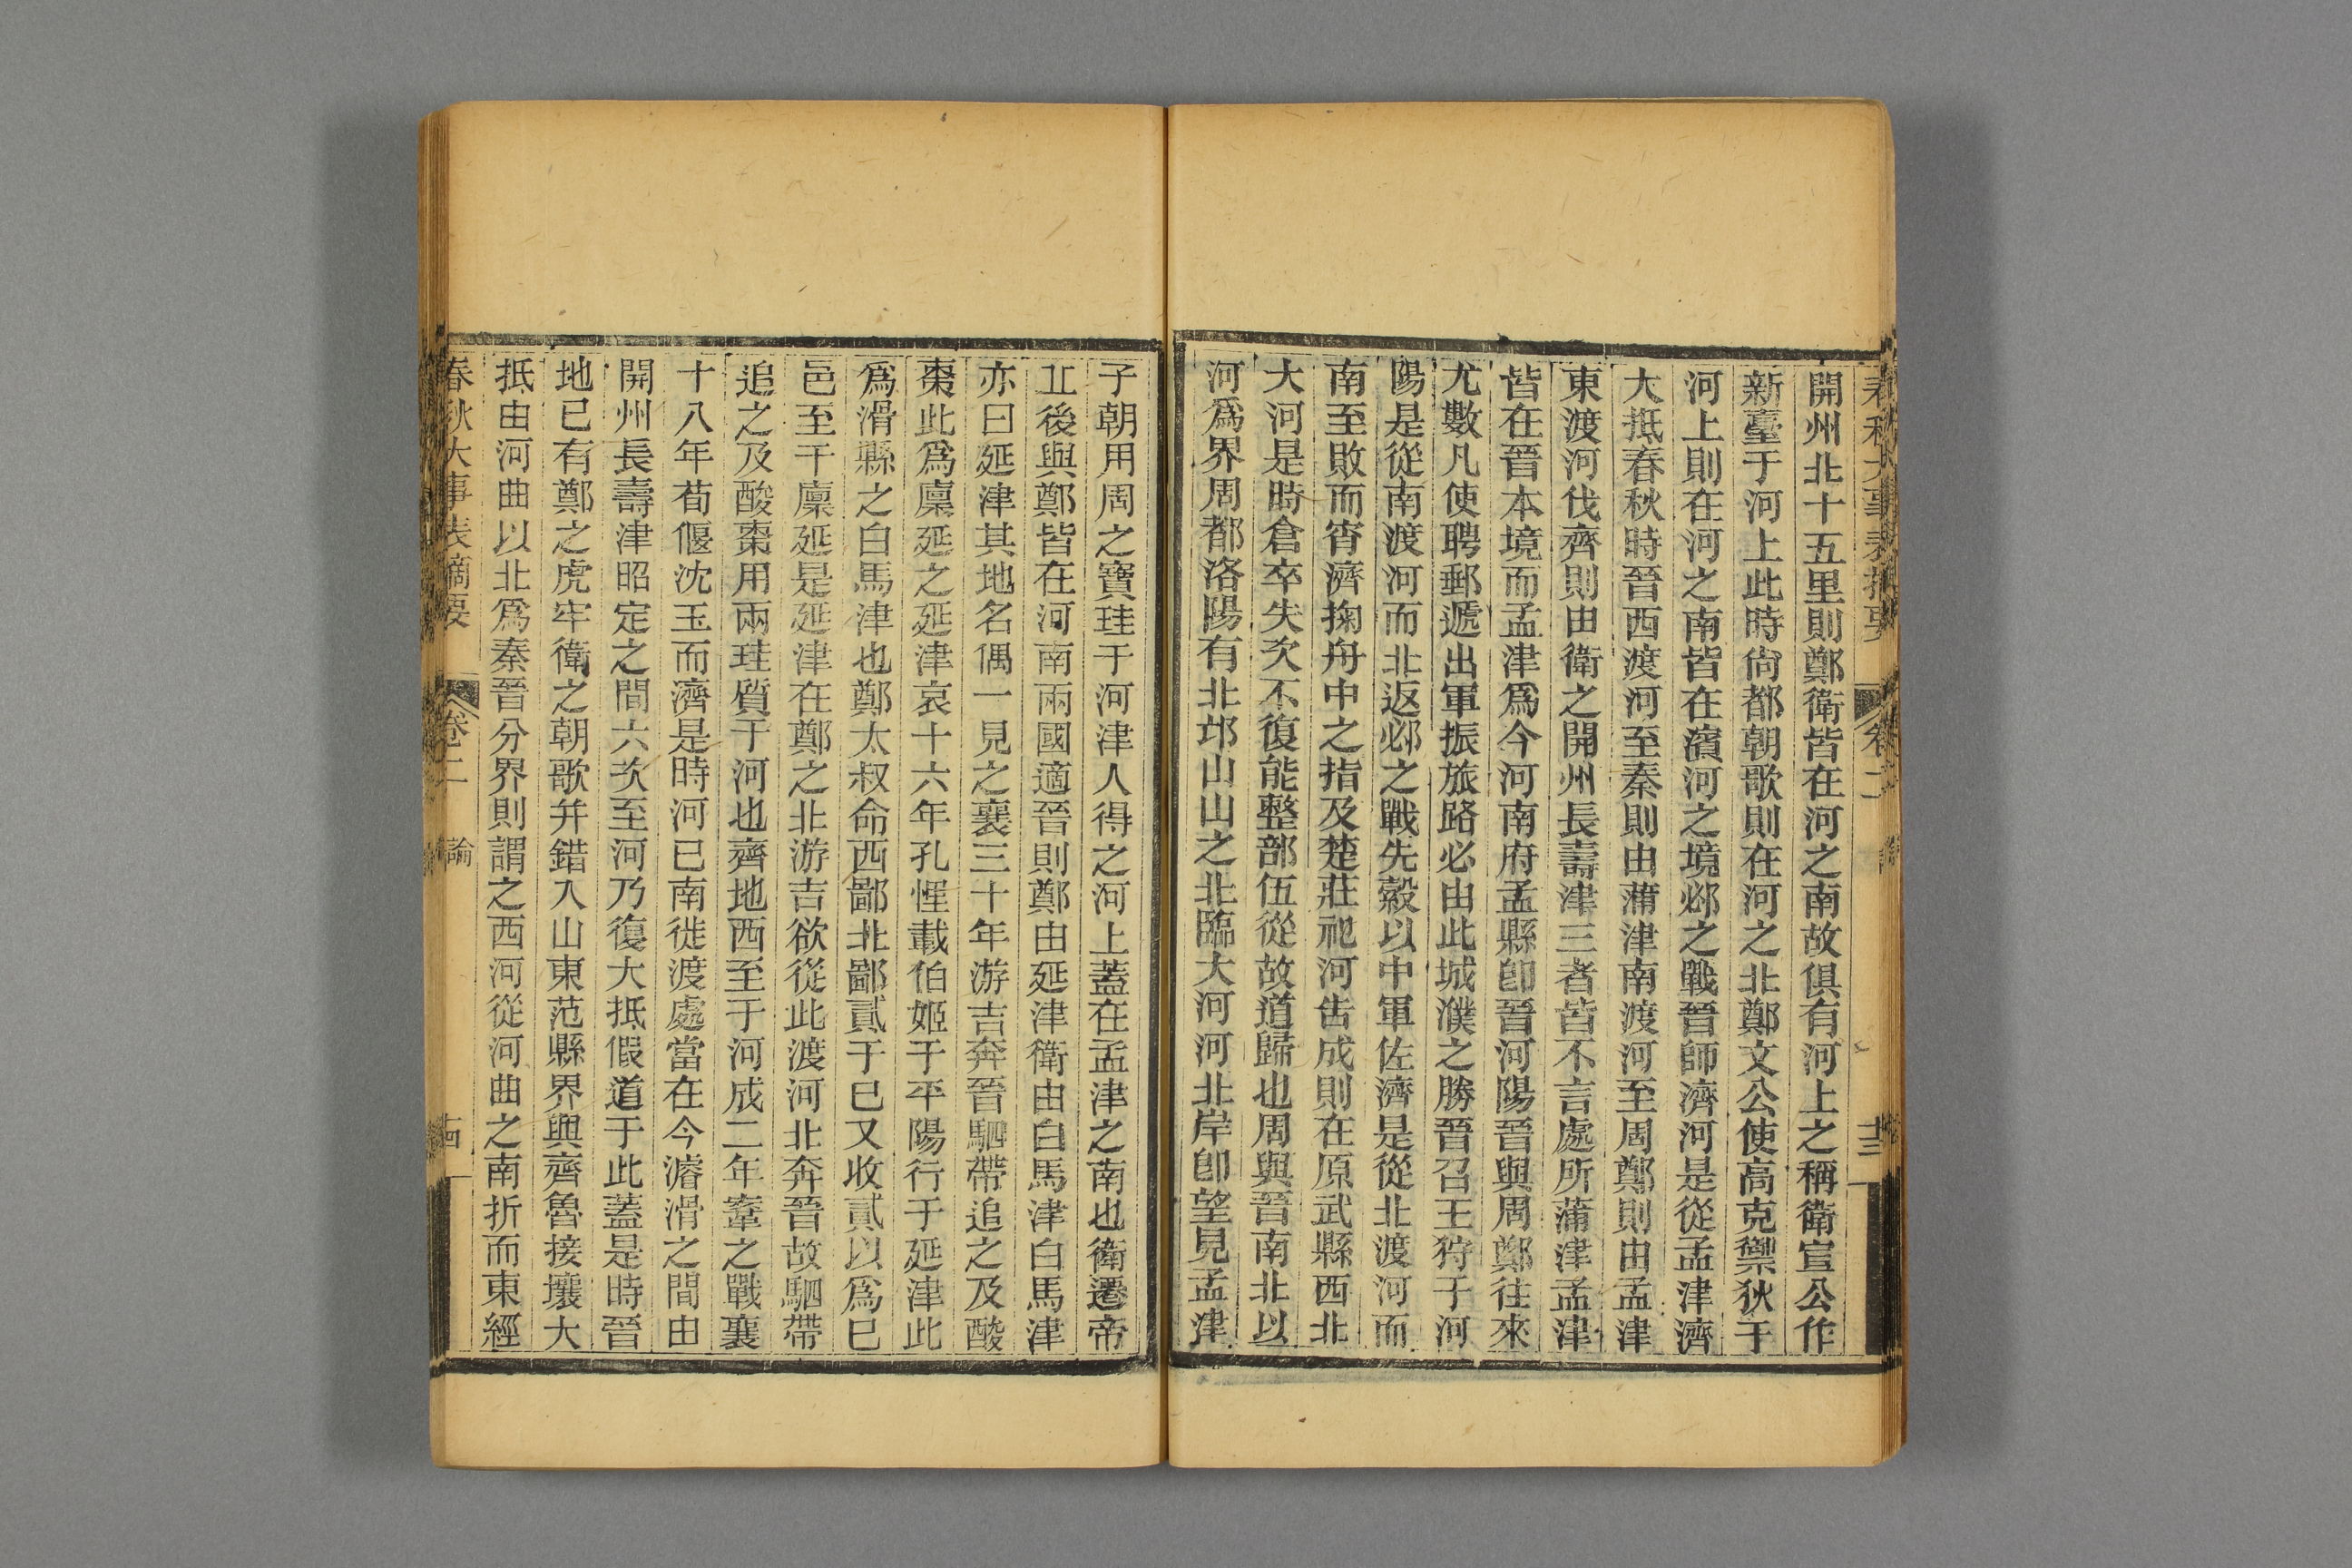 春秋大事表摘要 卷二 論 十三
開州北十五里則鄭衛皆在河之南故俱有河上之稱衛宣公作
新臺于河上此時尙都朝歌則在河之北鄭文公使高克禦狄于
河上則在河之南皆在濱河之境邲之戰晉師濟河是從孟津濟
大抵春秋時晉西渡河至秦則由蒲津南渡河至周鄭則由孟津
東渡河伐齊則由衛之開州長壽津三者皆不言處所蒲津孟津
皆在晉本境而孟津爲今河南府孟縣卽晉河陽晉與周鄭往來
尤數凡使聘郵遞出軍振旅路必由此城濮之勝晉召王狩于河
陽是從南渡河而北返邲之戰先縠以中軍佐濟是從北渡河而
南至敗而宵濟掬舟中之指及楚莊祀河告成則在原武縣西北
大河是時倉卒失次不復能整部伍從故道歸也周與晉南北以
河爲界周都洛陽有北邙山山之北臨大河河北岸卽望見孟津
子朝用周之寶珪于河津人得之河上蓋在孟津之南也衛遷帝
丘後與鄭皆在河南兩國適晉則鄭由延津衛由白馬津白馬津
亦曰延津其地名偶一見之襄三十年游吉奔晉駟帶追之及酸
棗此爲廩延之延津哀十六年孔悝載伯姬于平陽行于延津此
爲滑縣之白馬津也鄭太叔命西鄙北鄙貳于已又收貳以爲已
邑至于廩延是延津在鄭之北游吉欲從此渡河北奔晉故駟帶
追之及酸棗用兩珪質于河也齊地西至于河成二年鞌之戰襄
十八年荀偃沈玉而濟是時河已南徙渡處當在今濬滑之間由
開州長壽津昭定之間六次至河乃復大抵假道于此蓋是時晉
地已有鄭之虎牢衛之朝歌并錯入山東范縣界與齊魯接壤大
抵由河曲以北爲秦晉分界則謂之西河從河曲之南折而東經
春秋大事表摘要 卷二 論 十四